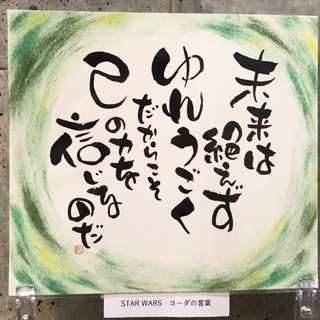 未来は
絶えず
ゆれうごく
だからこそ
己の力を
信じるのだ
STAR WARS ヨーダの言葉